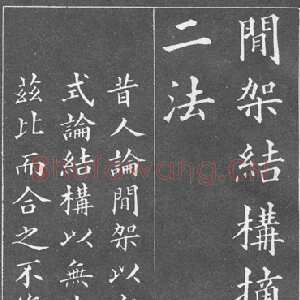 間架結構摘
二法
昔人論間架以
式論結構以無
茲比而合之不